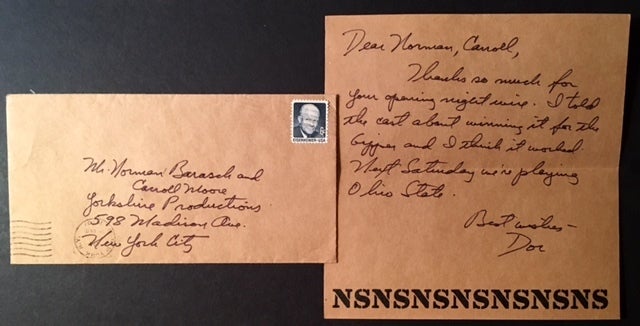 Mr. Norman Barasch and
Carroll Moore
Yorkshire Productions
598 Madison Ave.
New York City
EISENHOWER·USA
Dear Norman, Carroll,
Thanks so much for
your opening night wire. I told
the cast about winning it for the
Gipper and I think it worked
Next Saturday we're playing
Ohio State.
Best wishes–
Doc
NSNSNSNSNSNSNS